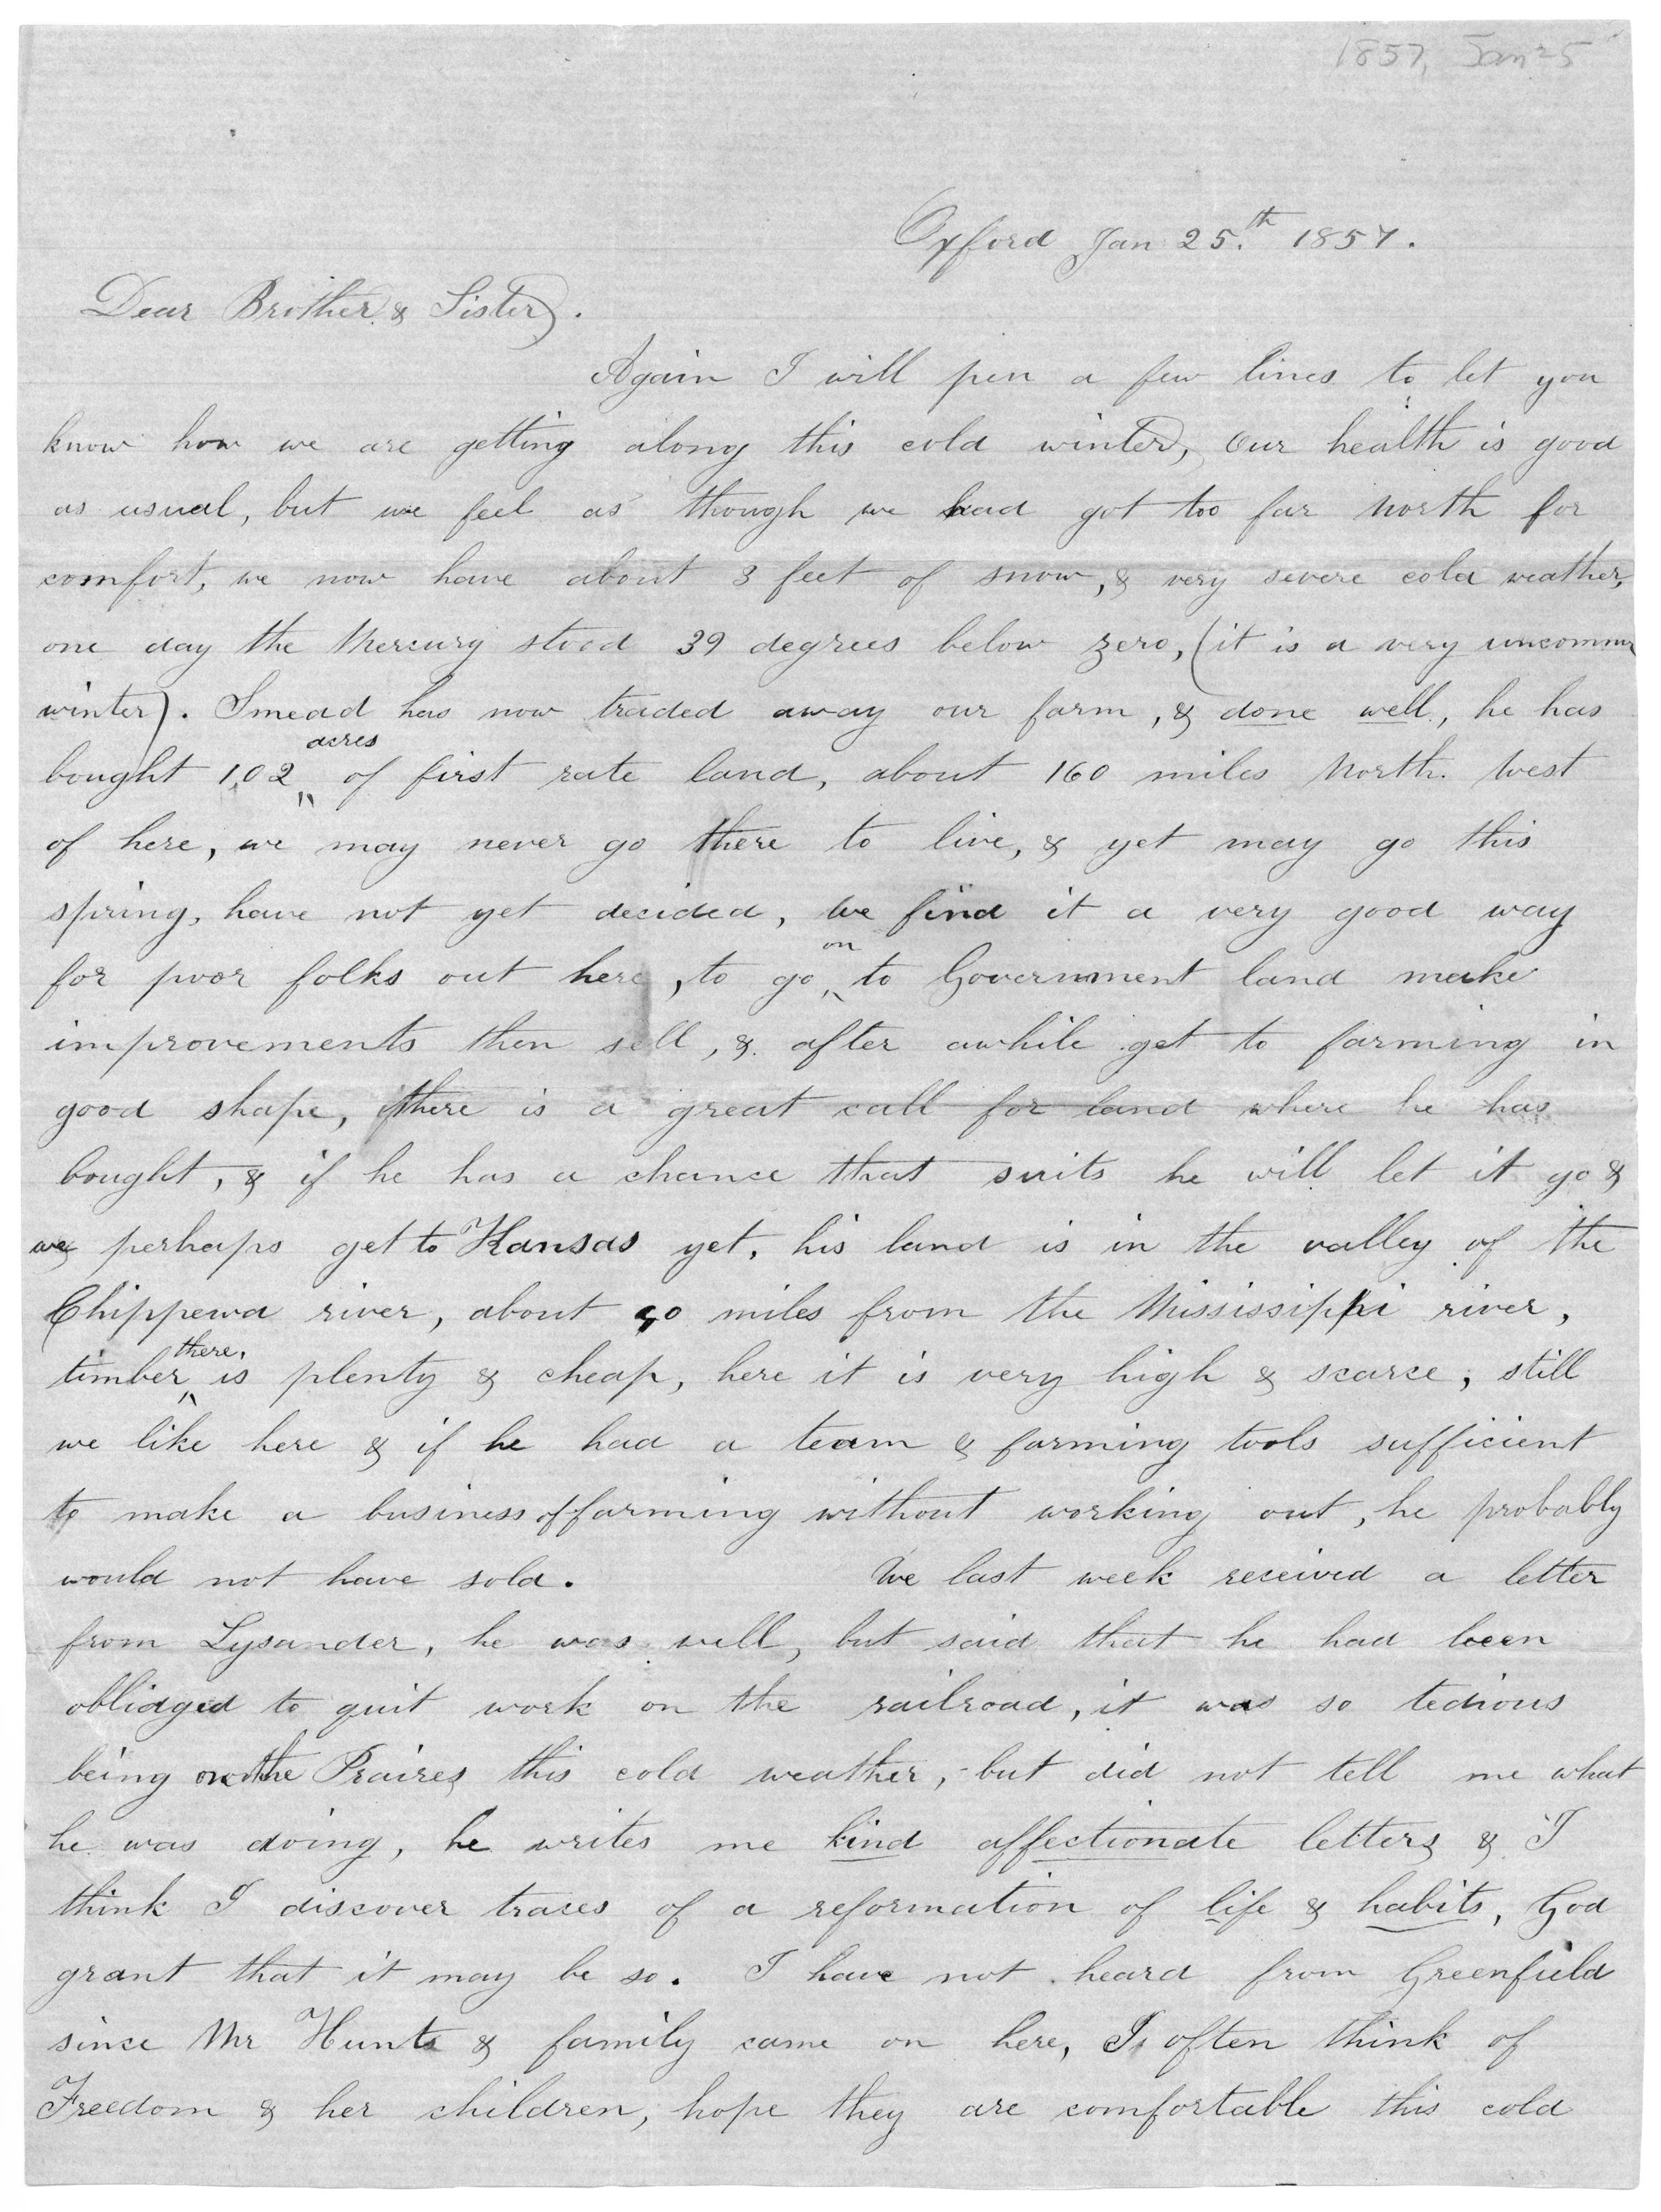 1857, Jan 25
Oxford Jan 25.th 1857.
Dear Brother & Sister.
Again I will pen a few lines to let you
know how we are getting along this cold winter, Our health is good
as usual, but we feel as though we had got too far North for
comfort, we now have about 3 feet of snow, & very severe cold weather,
one day the Mercury stood 39 degrees below zero, (it is a very uncommon
winter). Smead has now traded away our farm, & done well, he has
bought 102 acres of first rate land, about 160 miles North West
of here, we may never go there to live, & yet may go this
spring, have not yet decided, we find it a very good way
for poor folks out here, to go on to Government land make
improvements then sell, & after awhile get to farming in
good shape, there is a great call for land where he has
bought, & if he has a chance that suits he will let it go &
we perhaps get to Kansas yet, his land is in the valley of the
Chippewa river, about miles from the Mississippi river,
timber there, is plenty & cheap, here it is very high & scarce, still
we like here & if he had a team & farming tools sufficient
to make a business of farming without working out, he probably
would not have sold. We last week received a letter
from Lysander, he was well, but said that he had been
oblidged to quit work on the railroad, it was so tedious
being on the Praires this cold weather, but did not tell me what
he was doing, he writes me kind affectionate letters & I
think I discover traces of a reformation of life & habits, God
grant that it may be so. I have not heard from Greenfield
since Mr Hunts & family came on here, I often think of
Freedom & her children, hope they are comfortable this cold